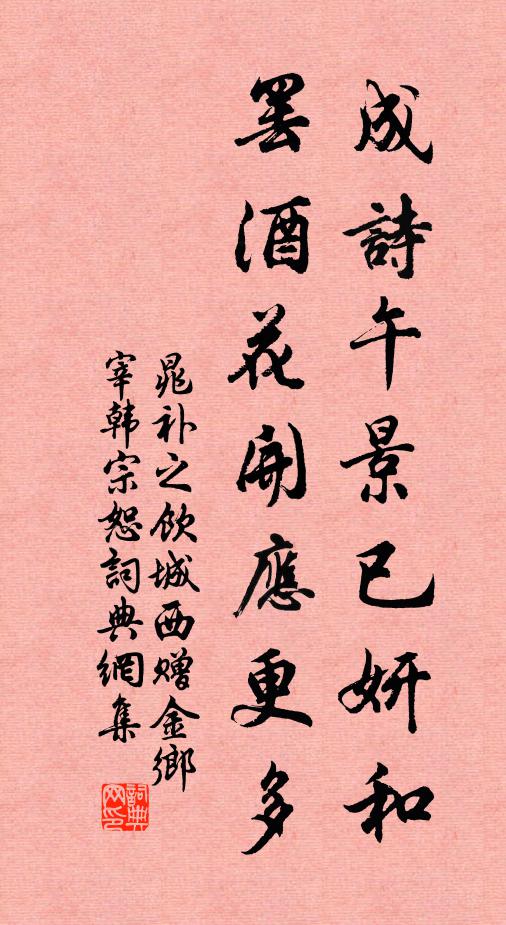 成詩午景已妍和
罷酒花開應更多
晁补之飲城西贈金鄉
宰韩宗恕詞典網集
詞典
网印